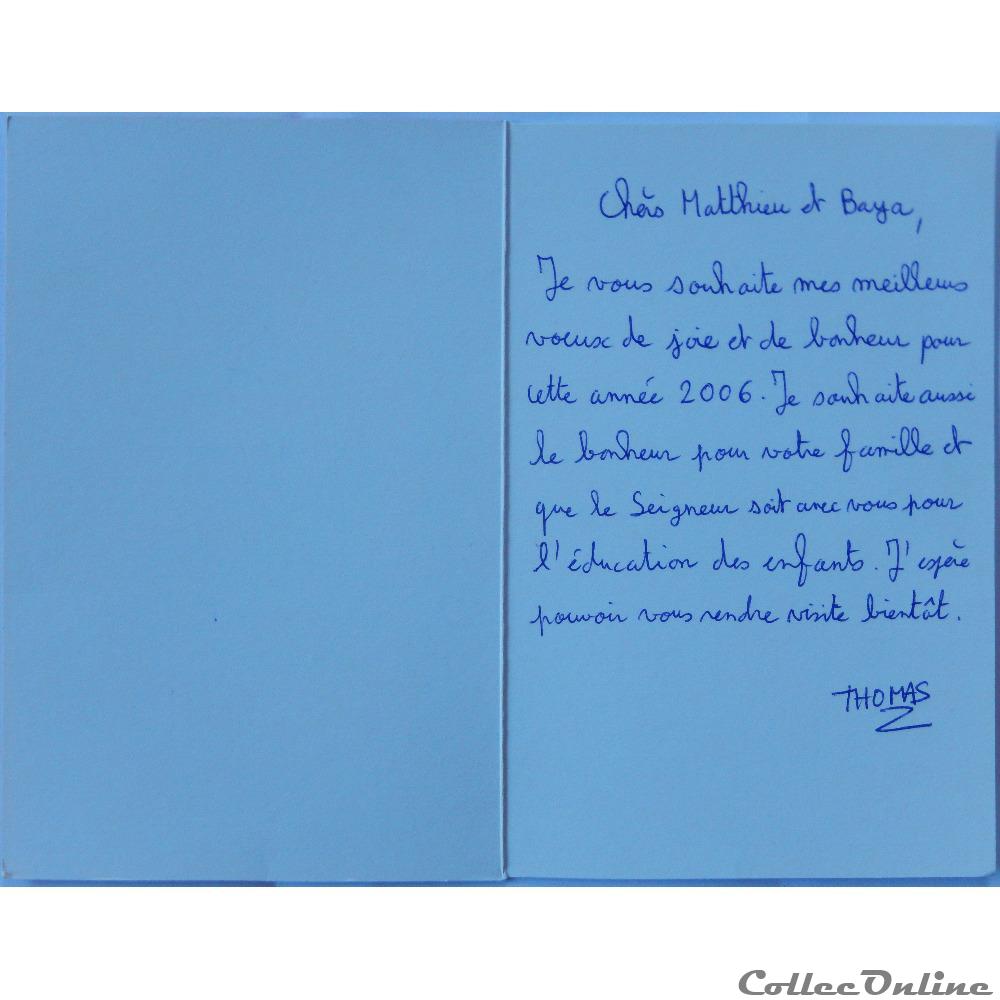 Chèrs Matthieu et Baya,
Je vous souhaite mes meilleurs
voeux de joie et de bonheur pour
cette année 2006. Je souhaite aussi
le bonheur pour votre famille et
que le Seigneur soit avec vous pour
l'éducation des enfants. J'espère
pouvoir vous rendre visite bientôt.
THOMAS
CollecOnline